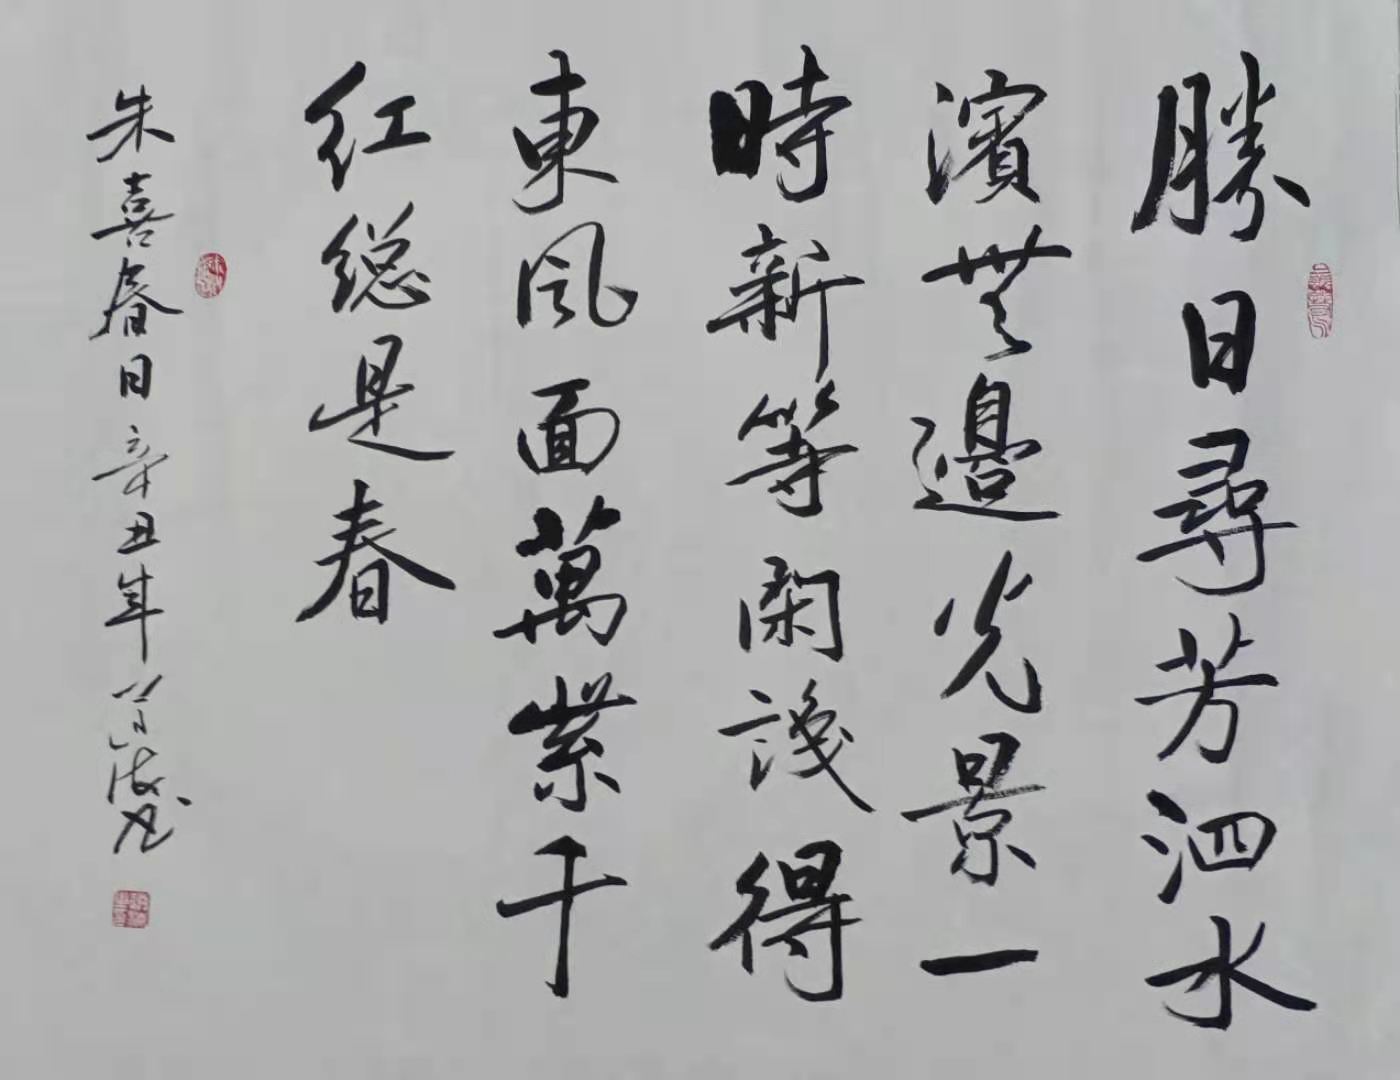 勝日尋芳泗水
濱無邊光景一
時新等閑識得
東風面萬紫千
红總是春
朱喜春日辛丑年